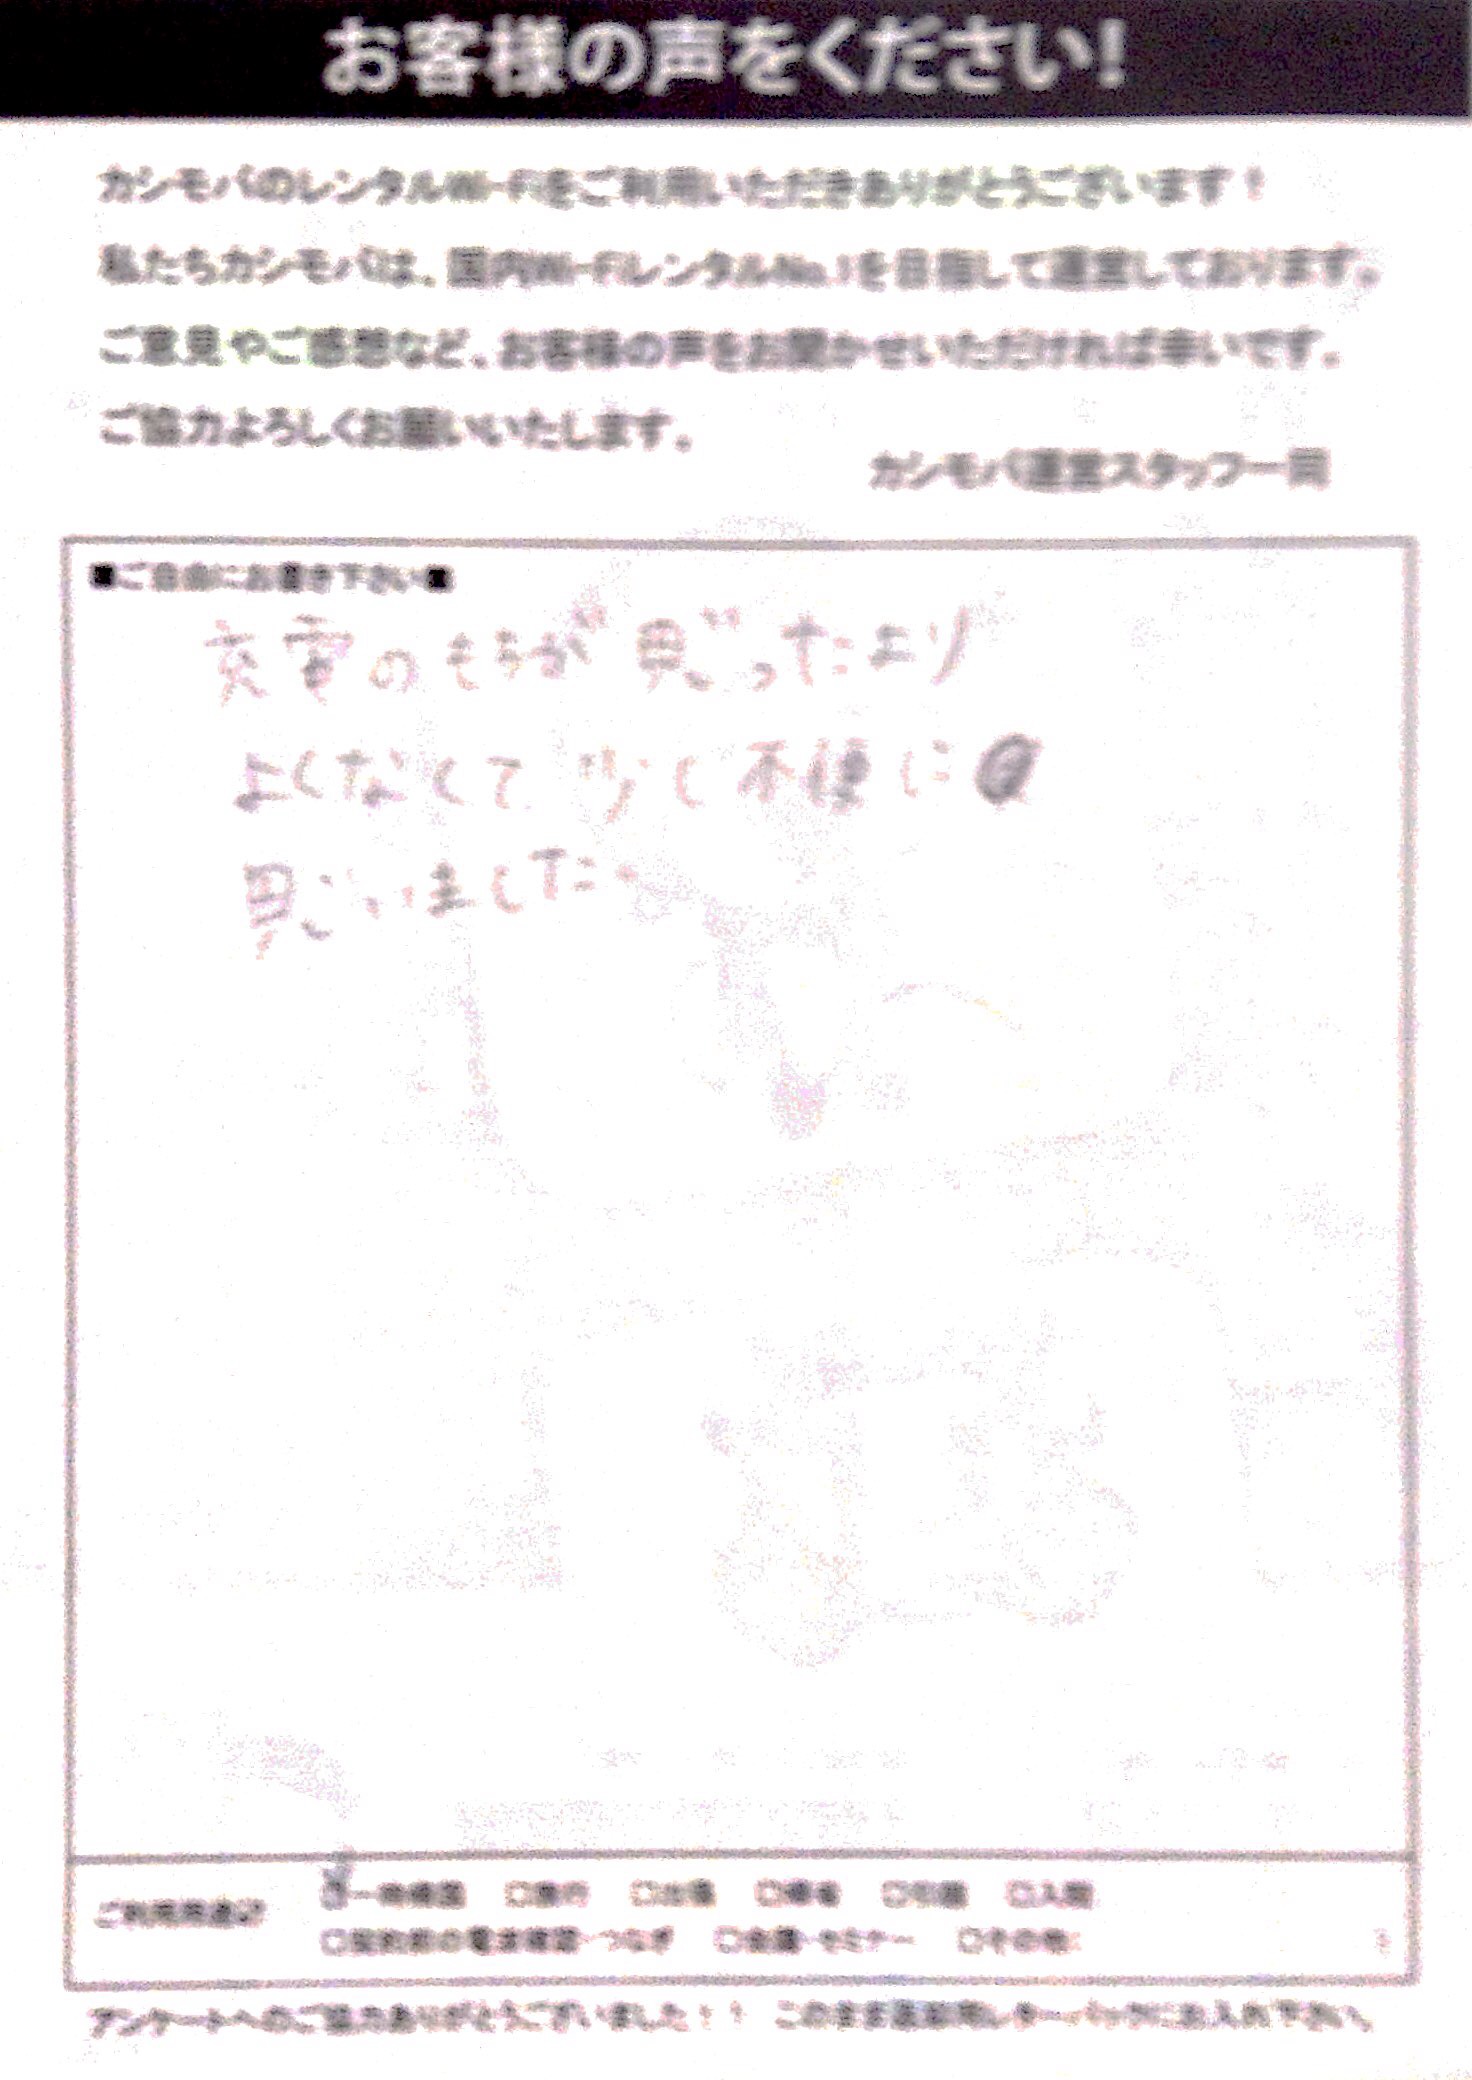 お客様の声をください!
カシモバのレンタルWi-Fiをご利用いただきありがとうございます！
私たちカシモバは、国内Wi-FiレンタルNo.1を目指して運営しております。
ご意見やご感想など、お客様の声をお聞かせいただければ幸いです。
ご協力よろしくお願いいたします。
カシモバ運営スタッフ一同
■ご自由にお書き下さい■
充電のもちが思ったより
よくなくて少し不便に
思いました。
ご利用用途は
□一時帰国 □旅行 □出張 □引越 □入院
□会議・セミナー □その他(
アンケートへのご協力ありがとうございました！！ このまま返却用レターパックにお入れ下さい。